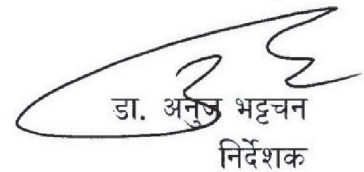 डा. अनुज भट्टचन
निर्देशक